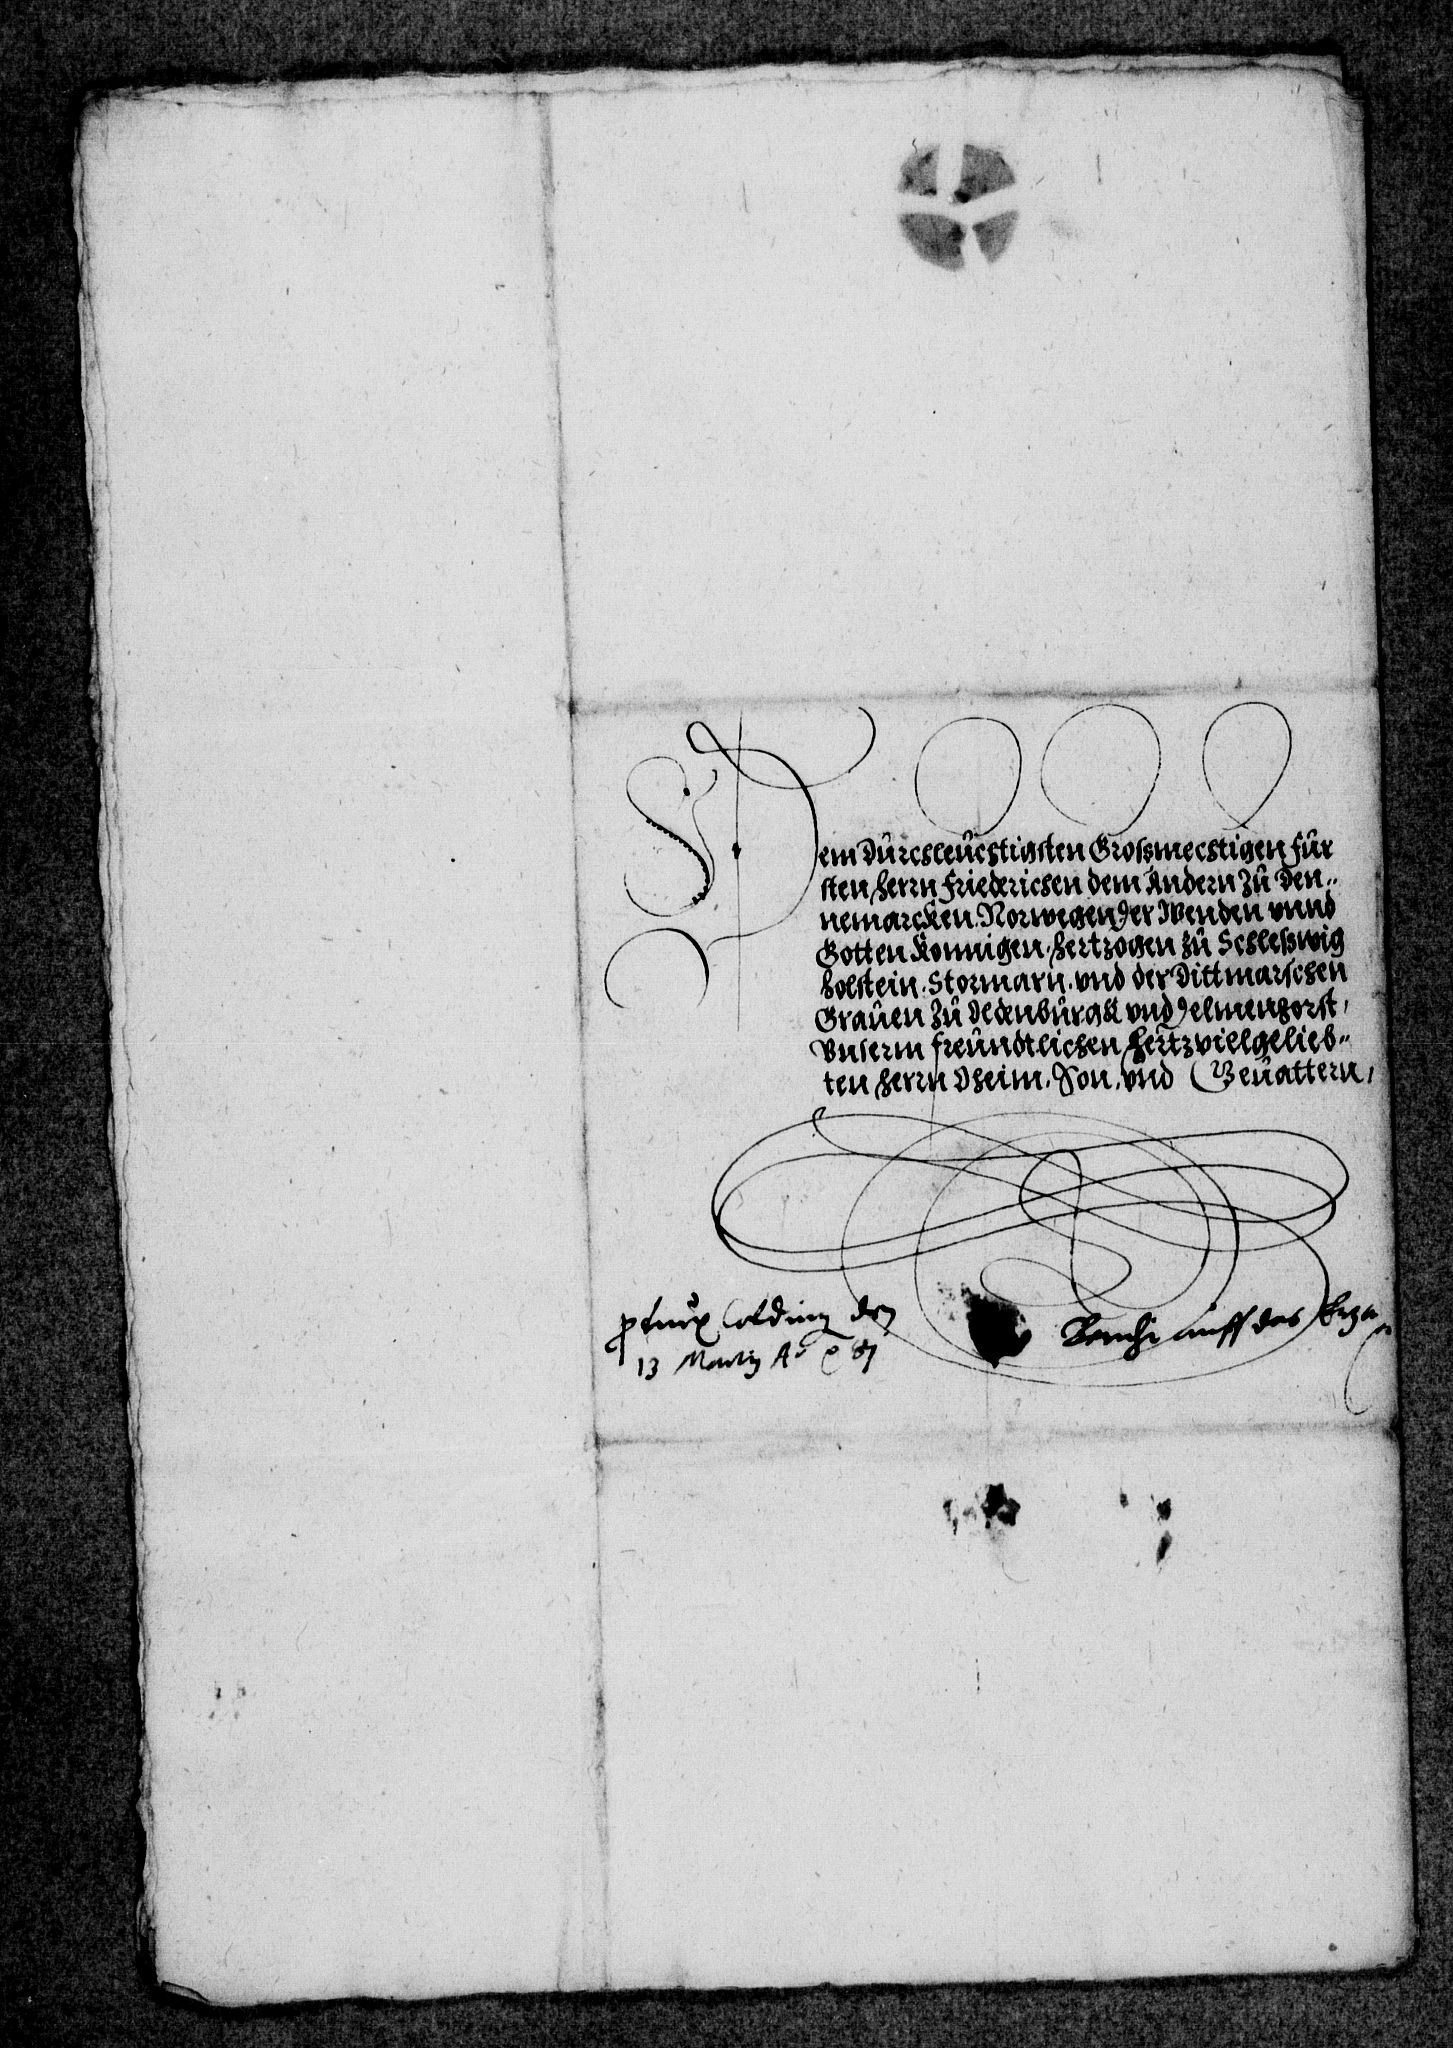 Dem Dürchleüchtigsten Großmechtigen Für
sten Herrn Friederichen dem Andern Zü Den¬
nemarcken Norwegen Der Wenden vnnd
Gotten Konnigen, Hertzogen Zü Schleßwig
Holstein, Stormarn, vnd der Dittmarschen
Graüen Zü Oldenbürgk vnd Delmenhorst,
Vnserm freündtlichen Hertzvielgelieb¬
ten Herrn Oheim, Son, vnd Geüattern,
Colding den
13 Martij A° 87
auff das